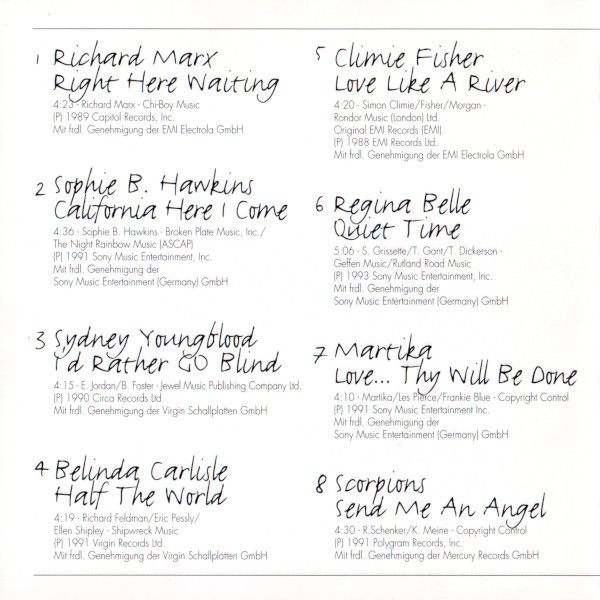 1 Richard Marx
Right Here Waiting
4:23 - Richard Marx - Chi-Boy Music
(P) 1989 Capitol Records, Inc.
Mit frdl. Genehmigung der EMI Electrola GmbH
2 Sophie B. Hawkins
California Here I Come
4:36 - Sophie B. Hawkins - Broken Plate Music, Inc./
The Night Rainbow Music (ASCAP)
(P) 1991 Sony Music Entertainment, Inc.
Mit frdl. Genehmigung der
Sony Music Entertainment (Germany) GmbH
3 Sydney Youngblood
I'd Rather GO Blind
4:15 - E. Jordan/B. Foster - Jewel Music Publishing Company Ltd.
(P) 1990 Circa Records Ltd.
Mit frdl. Genehmigung der Virgin Schallplatten GmbH
4 Belinda Carlisle
Half The World
4:19 - Richard Feldman/Eric Pessly/
Ellen Shipley - Shipwreck Music
(P) 1991 Virgin Records Ltd.
Mit frdl. Genehmigung der Virgin Schallplatten GmbH
5 Climie Fisher
Love Like A River
4:20 - Simon Climie/Fisher/Morgan -
Rondor Music (London) Ltd.
Original EMI Records (EMI)
(P) 1988 EMI Records Ltd.
Mit frdl. Genehmigung der EMI Electrola GmbH
6 Regina Belle
Quiet Time
5:06 - S. Grissette/T. Gant/T. Dickerson -
Geffen Music/Rutland Road Music
(P) 1993 Sony Music Entertainment, Inc.
Mit frdl. Genehmigung der
Sony Music Entertainment (Germany) GmbH
7 Martika
Love... Thy Will Be Done
4:10 - Martika/Les Pierce/Frankie Blue - Copyright Control
(P) 1991 Sony Music Entertainment Inc.
Mit frdl. Genehmigung der
Sony Music Entertainment (Germany) GmbH
8 Scorpions
Send Me An Angel
4:30 - R.Schenker/K. Meine - Copyright Control
(P) 1991 Polygram Records, Inc.
Mit frdl. Genehmigung der Mercury Records GmbH